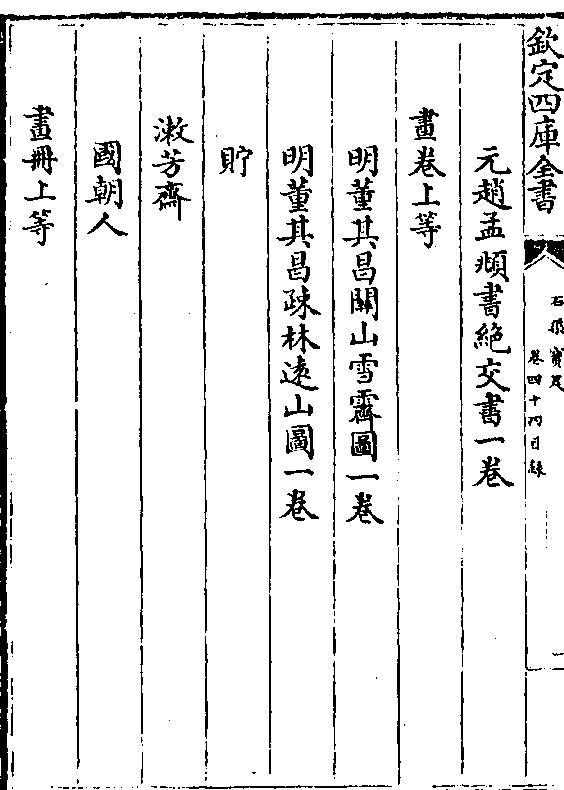 欽定四庫全書
石渠寶笈
卷四十四目錄
元趙孟頫書絶交書一卷
畫卷上等
明董其昌關山雪霽圖一卷
明董其昌疎林逺山圖一卷
貯
漱芳齋
國朝人
畫冊上等